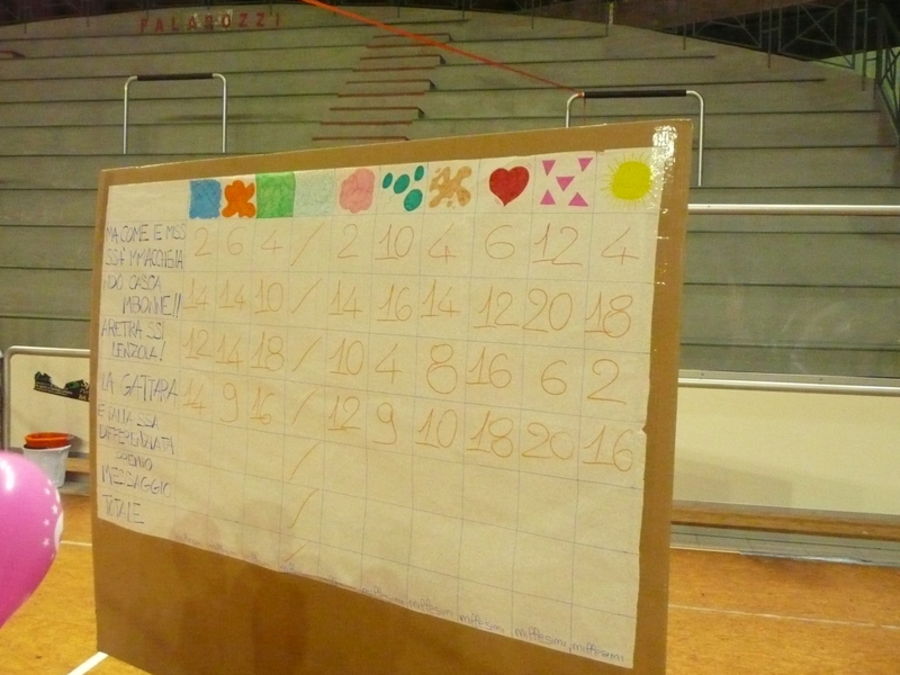 PALAROZZI
MA COME E MISS 2 6 4 / 2 10 4 6 12 4
SSA MMACCHGNA
NDO CASCA 14 14 10 / 14 16 14 12 20 18
MBONNE!!
ARETRA SSI 12 14 18 / 10 4 8 16 6 2
LENZOLA!
LA GATTARA 14 9 16 / 12 9 10 18 20 16
E DAIJA SSA /
DIFFERENZIATA
PREMIO /
MESSAGGIO
TOTALE /
miffesimi miffesimi miffesimi miffesimi miffesimi